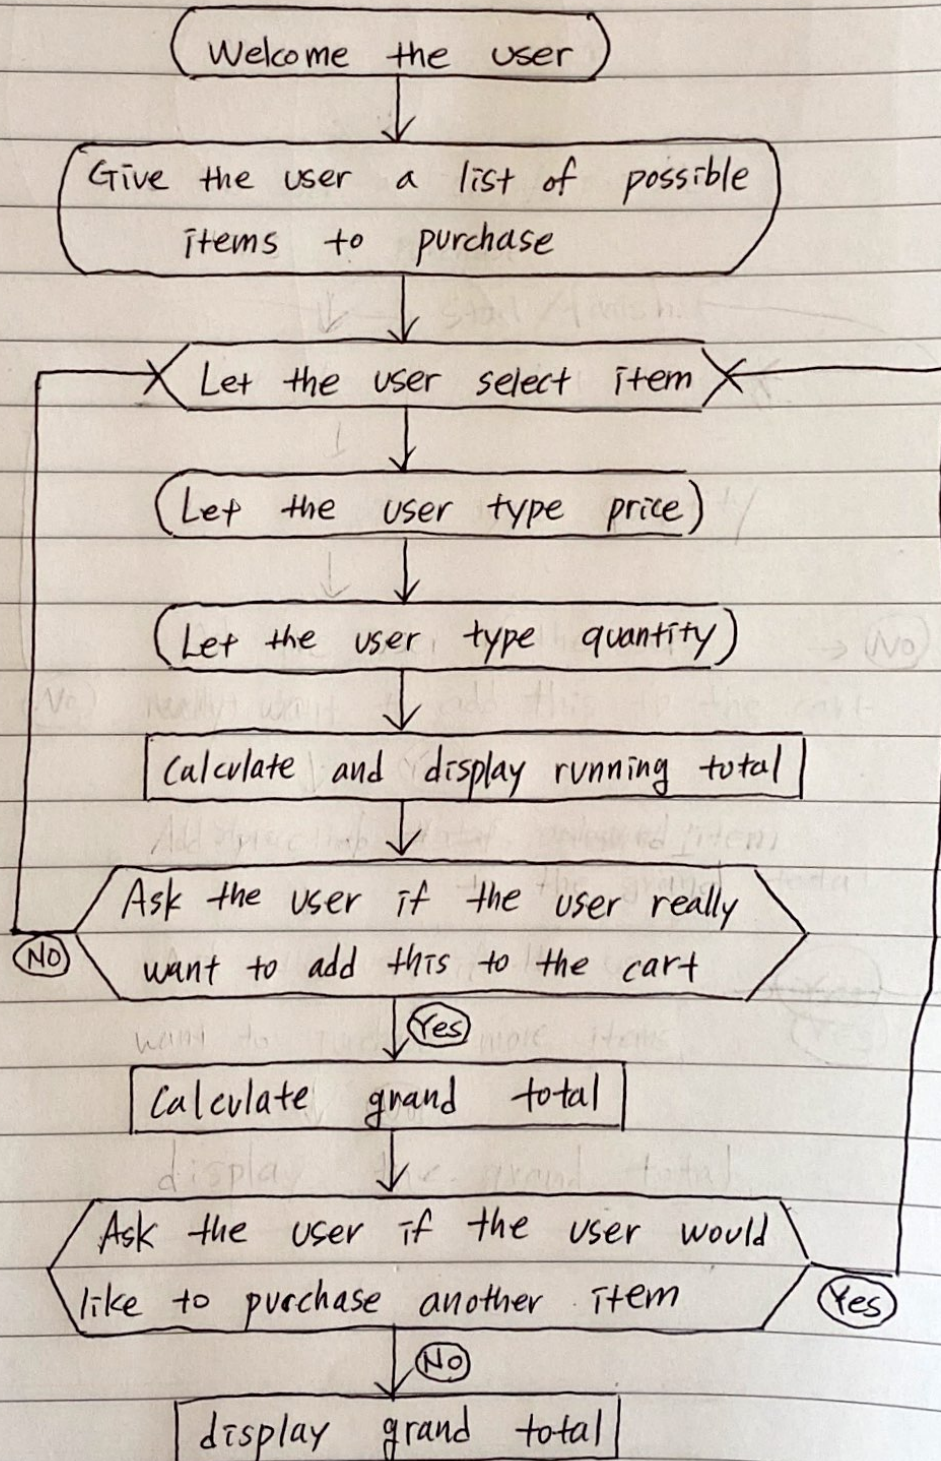 Welcome the user
Give the user a list of possible
items to purchase
Let the user select item
Let the user type price
Let the user type quantity
Calculate and display running total
Ask the user if the user really
want to add this to the cart
No
Yes
Calculate grand total
Ask the user if the user would
like to purchase another item
Yes
No
display grand total